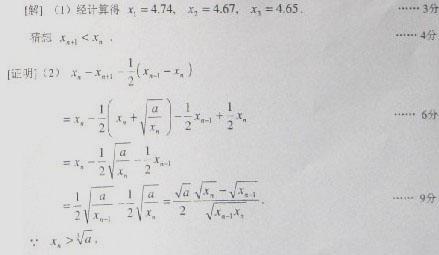 [解] (1) 经计算得 x₁ = 4.74, x₂ = 4.67, x₃ = 4.65. ······3分
猜想 xₙ₊₁ < xₙ. ······4分
[证明] (2) xₙ − xₙ₊₁ − 1/2(xₙ₋₁ − xₙ)
= xₙ − 1/2(xₙ + √(a/xₙ)) − 1/2 xₙ₋₁ + 1/2 xₙ ······6分
= xₙ − 1/2 √(a/xₙ) − 1/2 xₙ₋₁
= 1/2 √(a/xₙ₋₁) − 1/2 √(a/xₙ) = √a/2 · (√xₙ − √xₙ₋₁)/√(xₙ₋₁xₙ). ······9分
∵ xₙ > ∛a,